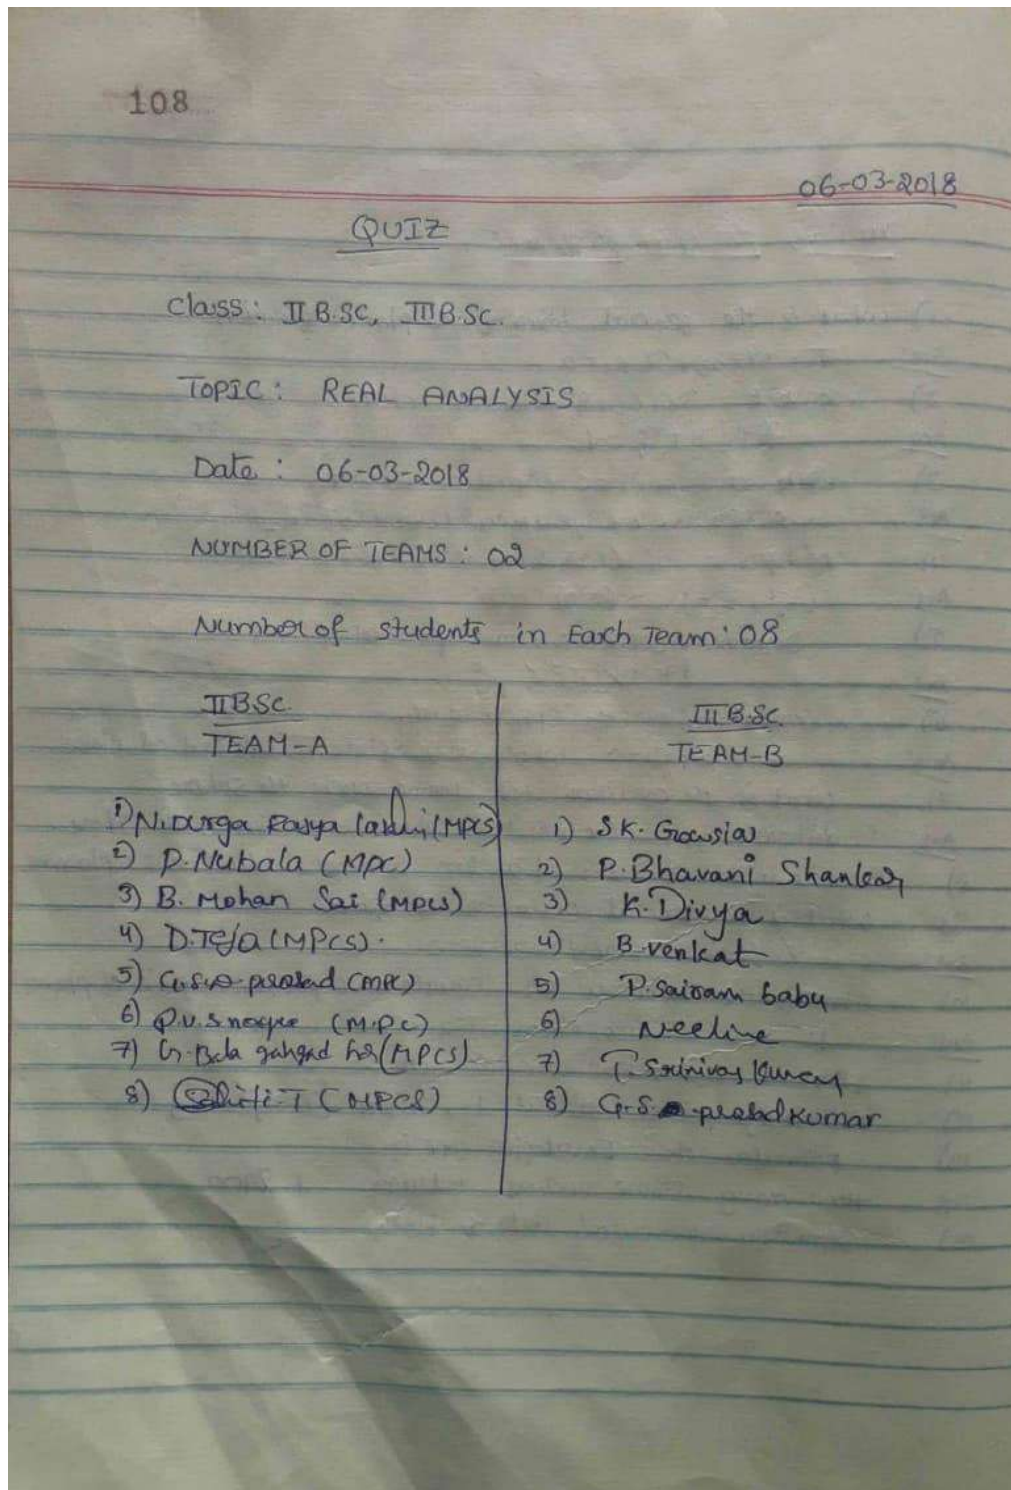 108
06-03-2018
QUIZ
Class: II B.SC, III B.SC.
TOPIC: REAL ANALYSIS
Date: 06-03-2018
NUMBER OF TEAMS: 02
Number of students in Each Team: 08
II B.Sc.
TEAM-A
1) N. Durga (MPCS)
2) P. Nubala (MPC)
3) B. Mohan Sai (MPCS)
4) D. Teja (MPCS).
5) prasad (MPC)
6) P.V.S (M.P.C)
7) G. Bala (MPCS)
8) T (MPCS)
III B.Sc.
TEAM-B
1) SK. Gousia
2) P. Bhavani Shankar
3) K. Divya
4) B. venkat
5) P. Sairam babu
6) Neeline
7) T. Srinivas Kumar
8) G.S. prasad kumar